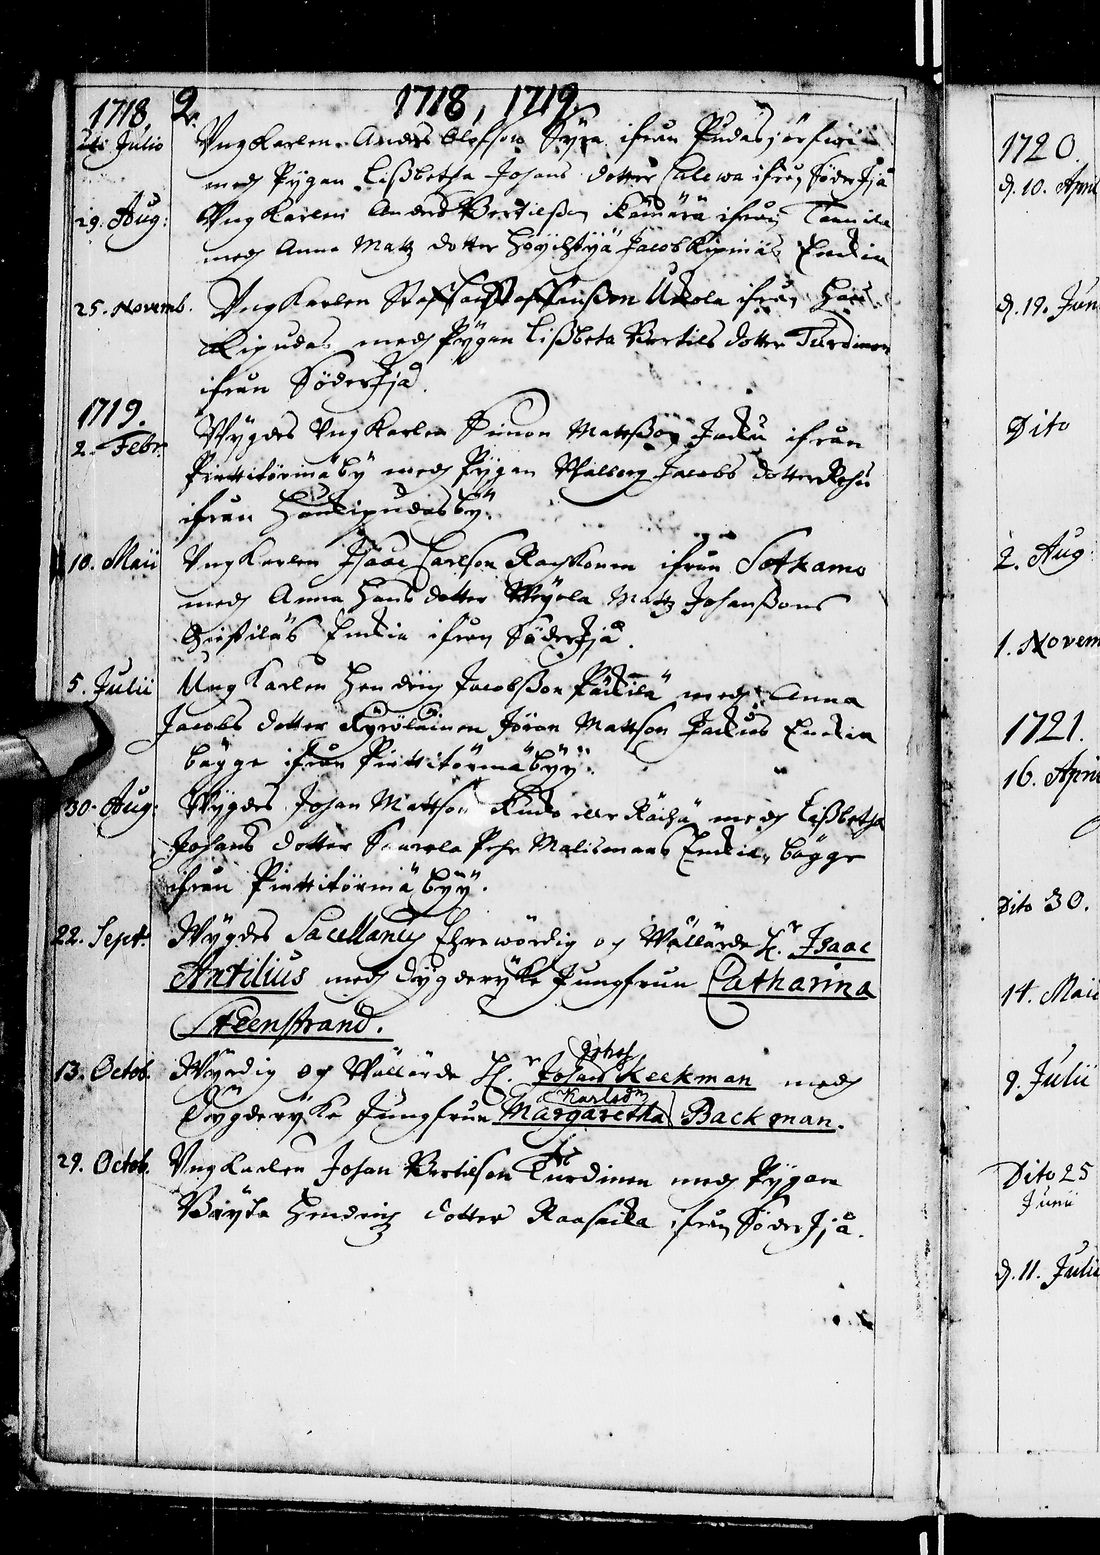 1718, 1719.
1718. 2.
uti Julio Ungkarlen Anders Olofson Syri ifrån Pudasjerfwi
med Pygan Lißbetha Johans dotter Calewa ifrån Söder Ijå
29. Aug: Ungkarlen Anders Bertilßon Kämärä ifrån
med Anna Matz dotter Jacob Enkia
25. Novemb. Ungkarlen Staffan Staffanßon Uckola ifrån Hau
kipudas med Pygan Lißbeta Bertils dotter Turdinen
ifrån Söder Ijå.
1719.
2. Febr. Wygdes Ungkarlen Simon Mattßon Jacku ifrån
Pirttitörmä by med Pygan Walborg Jacobs dotter
ifrån Haukipudas by.
10. Maii Ungkarlen Isaac Carlson Karhonen ifrån Sotkamo
med Anna Hans dotter Matz Johanßons
Enkia ifrån Söder Ijå.
5. Julii Ungkarlen Hendrich Jacobßon Päckilä med Anna
Jacobs dotter Kyröläinen Jöran Mattson Jackus Enkia
bägge ifrån Pirttitörmä byÿ.
30. Aug: Wygdes Johan Mattson eller med Lißbetha
Johans dotter Pehr Malismans Enkia, bägge
ifrån Pirttitörmä byÿ.
22. Sept. Wygdes Sacellanus Ehrewördig og Wällärde H.r Isaac
Antilius med dygderyke Jungfrun Catharina
Steenstrand.
13. Octob. Wyrdig og Wällärde H.r Johan Keckman med
Dygderyke Jungfrun Margaretha Karlsdr Backman.
29. Octob. Ungkarlen Johan Bertilson Turdinen med Pygan
Bryta Hendrich dotter Raasacka ifrån Söder Ijå.
1720.
d. 10. April
d. 19. Jun
Dito
2. Aug
1. Novem
1721.
16. April
Dito 30.
14. Maii
9. Julii
Dito 25
Junii
d. 11. Julii